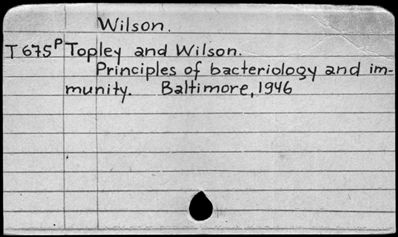 Wilson.
T675P Topley and Wilson.
Principles of bacteriology and im-
munity. Baltimore, 1946